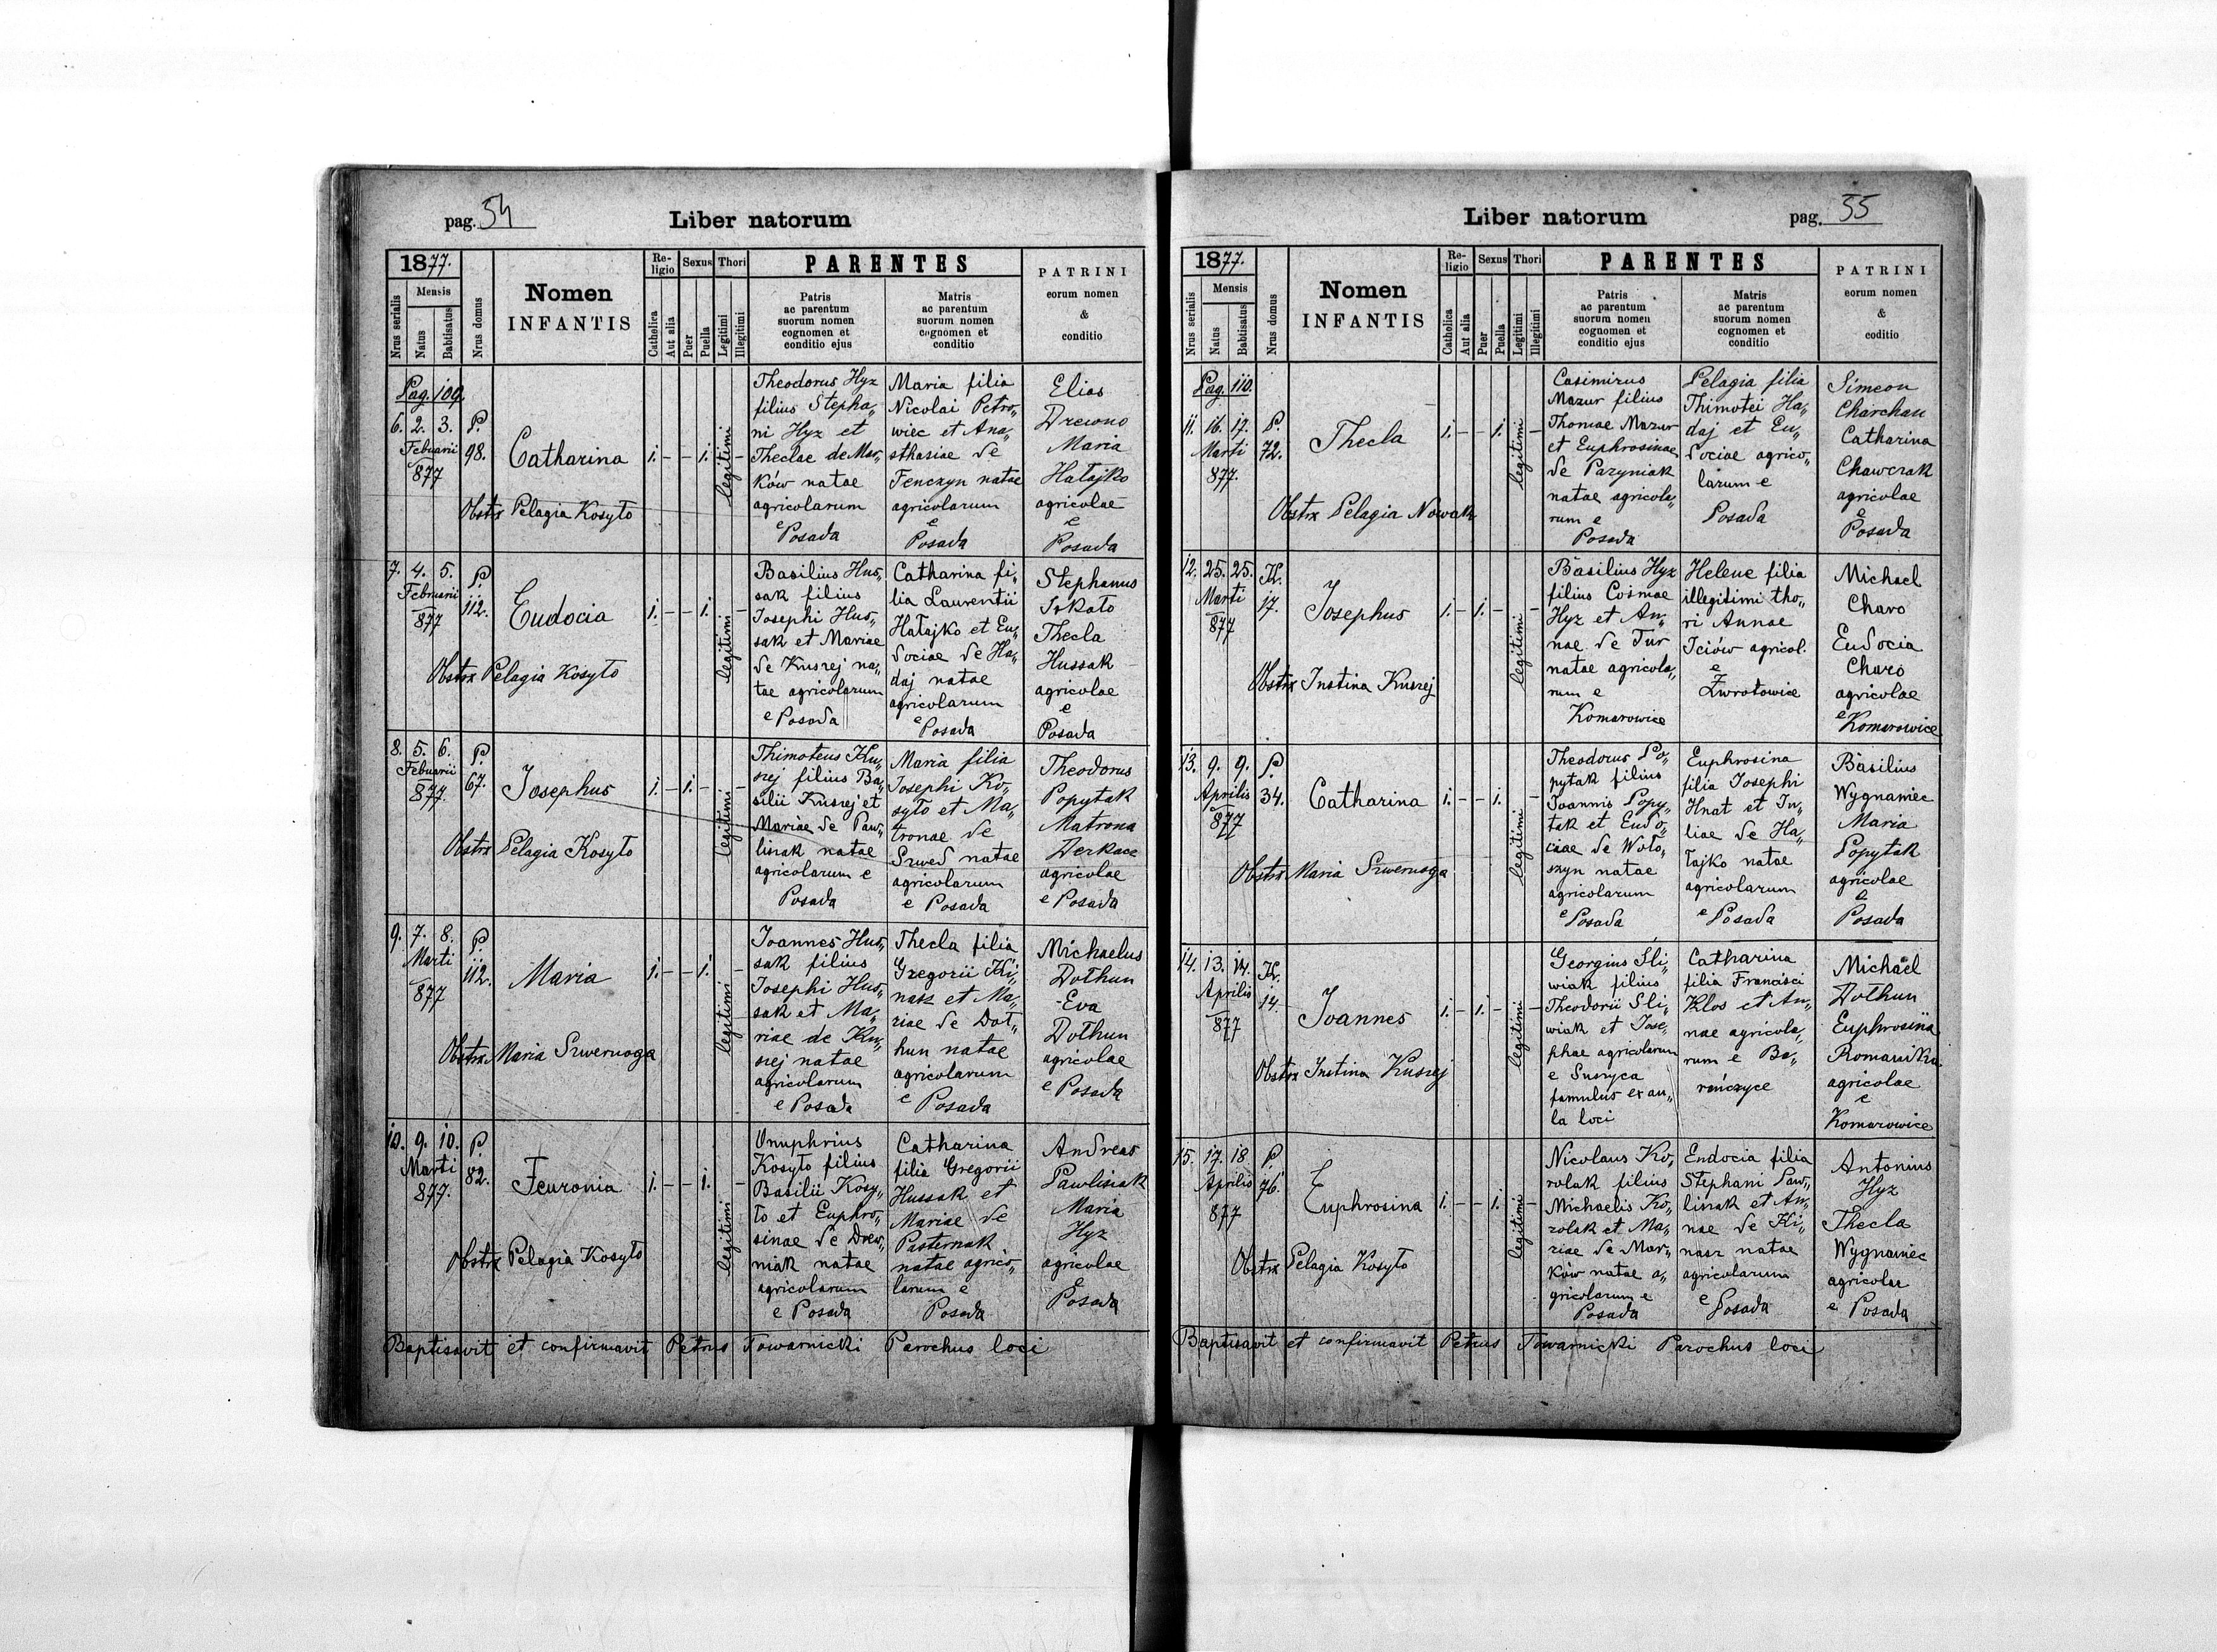 pag. 54
Liber natorum
1877.
Nrus serialis
Mensis
Natus
Babtisatus
Nrus domus
Nomen
INFANTIS
Re-
ligio
Catholica
Aut alia
Sexus
Puer
Puella
Thori
Legitimi
Illegitimi
PARENTES
Patris
ac parentum
suorum nomen
cognomen et
conditio ejus
Matris
ac parentum
suorum nomen
cognomen et
conditio
PATRINI
eorum nomen
&
conditio
Pag. 109.
6. 2. 3.
Februarii
877
P.
98.
Catharina
Obstrx Pelagia Kosyło
1. – – 1. legitimi –
Theodorus Hyz
filius Stepha„
ni Hyz et
Theclae de Mar„
ków natae
agricolarum
e
Posada
Maria filia
Nicolai Petro„
wiec et Ana„
sthasiae de
Fenczyn natae
agricolarum
e
Posada
Elias
Drewno
Maria
Hałajko
agricolae
e
Posada
7. 4. 5.
Februarii
877
P.
112.
Eudocia
Obstrx Pelagia Kosyło
1. – – 1. legitimi –
Basilius Hus„
sak filius
Josephi Hus„
sak et Mariae
de Kuszej na„
tae agricolarum
e Posada
Catharina fi„
lia Laurentii
Hałajko et Eu„
dociae de Ha„
daj natae
agricolarum
e Posada
Stephanus
Thecla
Hussak
agricolae
e
Posada
8. 5. 6.
Februarii
877.
P.
67.
Josephus
Obstrx Pelagia Kosyło
1. – 1. – legitimi –
Thimoteus Ku„
szej filius Ba„
silii Kuszej et
Mariae de Paw„
lisak natae
agricolarum e
Posada
Maria filia
Josephi Ko„
syło et Ma„
tronae de
Szwed natae
agricolarum
e Posada
Theodorus
Popytak
Matrona
Derkacz
agricolae
e Posada
9. 7. 8.
Marti
877
P.
112.
Maria
Obstrx Maria Szwernoga
1. – – 1. legitimi –
Joannes Hus„
sak filius
Josephi Hus„
sak et Ma„
riae de Ku„
szej natae
agricolarum
e Posada
Thecla filia
Gregorii Ki„
nasz et Ma„
riae de Doł„
hun natae
agricolarum
e Posada
Michaelus
Dołhun
Eva
Dołhun
agricolae
e Posada
10. 9. 10.
Marti
877.
P.
82.
Feuronia
Obstrx Pelagia Kosyło
1. – – 1. legitimi –
Onuphrius
Kosyło filius
Basilii Kosy„
ło et Euphro„
sinae de Drew„
niak natae
agricolarum
e Posada
Catharina
filia Gregorii
Hussak et
Mariae de
Pasternak
natae agrico„
larum e
Posada
Andreas
Pawlisiak
Maria
Hyz
agricolae
e
Posada
Baptisavit et confirmavit Petrus Towarnicki Parochus loci
Liber natorum
pag. 55
1877.
Nrus serialis
Mensis
Natus
Babtisatus
Nrus domus
Nomen
INFANTIS
Re-
ligio
Catholica
Aut alia
Sexus
Puer
Puella
Thori
Legitimi
Illegitimi
PARENTES
Patris
ac parentum
suorum nomen
cognomen et
conditio ejus
Matris
ac parentum
suorum nomen
cognomen et
conditio
PATRINI
eorum nomen
&
coditio
Pag. 110.
11. 16. 17.
Marti
877.
P.
72.
Thecla
Obstrx Pelagia Nowak
1. – – 1. legitimi –
Casimirus
Mazur filius
Thomae Mazur
et Euphrosinae
de Pazyniak
natae agricola„
rum e
Posada
Pelagia filia
Thimotei Ha„
daj et Eu„
dociae agrico„
larum e
Posada
Simeon
Charchan
Catharina
Chawczak
agricolae
e
Posada
12. 25. 25.
Marti
877
K.
17.
Josephus
Obstrx Justina Kuszej
1. – 1. – legitimi –
Basilius Hyz
filius Cosmae
Hyz et An„
nae de Tur
natae agricola„
rum e
Komarowice
Helene filia
illegitimi tho„
ri Annae
Iciów agricol.
e
Zwrotowice
Michael
Charo
Eudocia
Charo
agricolae
e Komarowice
13. 9. 9.
Aprilis
877
P.
34.
Catharina
Obstrx Maria Szwernoga
1. – – 1. legitimi –
Theodorus Po„
pytak filius
Joannis Popy„
tak et Eudo„
ciae de Woło„
szyn natae
agricolarum
e Posada
Euphrosina
filia Josephi
Hnat et Ju„
liae de Ha„
łajko natae
agricolarum
e Posada
Basilius
Wygnaniec
Maria
Popytak
agricolae
e
Posada
14. 13. 14.
Aprilis
877
K.
14.
Joannes
Obstrx Justina Kuszej
1. – 1. – legitimi –
Georgius Sli„
wiak filius
Theodorii Sli„
wiak et Jose„
phae agricolarum
e Suszyca
famulus ex au„
la loci
Catharina
filia Francisci
Klos et An„
nae agricola„
rum e Ba„
rańczyce
Michael
Dołhun
Euphrosina
agricolae
e
Komarowice
15. 17. 18.
Aprilis
877
P.
76.
Euphrosina
Obstrx Pelagia Kosyło
1. – – 1. legitimi –
Nicolaus Ko„
rolak filius
Michaelis Ko„
rolak et Ma„
riae de Mar„
ków natae a„
gricolarum e
Posada
Eudocia filia
Stephani Paw„
lisiak et An„
nae de Ki„
nasz natae
agricolarum
e Posada
Antonius
Hyz
Thecla
Wygnaniec
agricolae
e Posada
Baptisavit et confirmavit Petrus Towarnicki Parochus loci